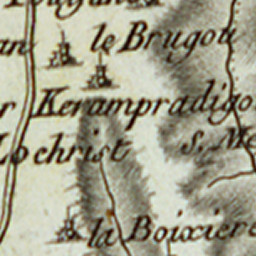 le Brugou
Kerampradigo
Lochrist
s. Me
la Boixiere